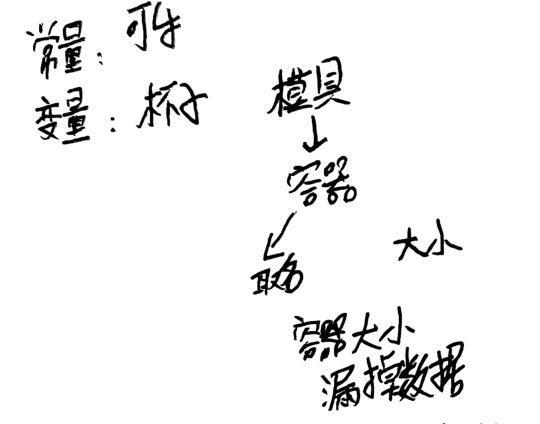 常量：可牛
变量：杯子
模具
容器
取名
大小
容器大小
漏掉数据